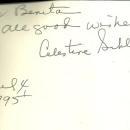 Benita
all good wishes
Celestine Sibl
4
1995